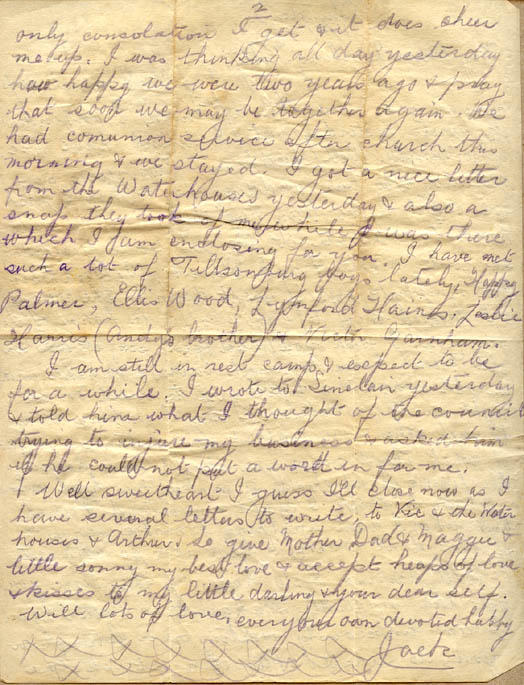 2
only consolation I get & it does cheer
me up. I was thinking all day yesterday
how happy we were two years ago & pray
that soon we may be together again. We
had comunion service after church this
morning & we stayed. I got a nice letter
from the Waterhouses yesterday & also a
snap they took of me while I was there
which I am enclosing for you. I have met
such a lot of Tillsonburg boys lately, Happy
Palmer, Ellis Wood, Lynford Haines, Leslie
Harris (Andys brother) & Garnham.
I am still in rest camp & expect to be
for a while. I wrote to Sinclair yesterday
& told him what I thought of the council
trying to injure my business & asked him
if he could not put a word in for me.
Well sweetheart I guess I'll close now as I
have several letters to write, to Vic & the Water
houses & Arthur. So give Mother Dad & Maggie &
little sonny my best love & accept heaps of love
& kisses to my little darling & your dear self.
With lots of love, ever your own devoted hubby
Jack